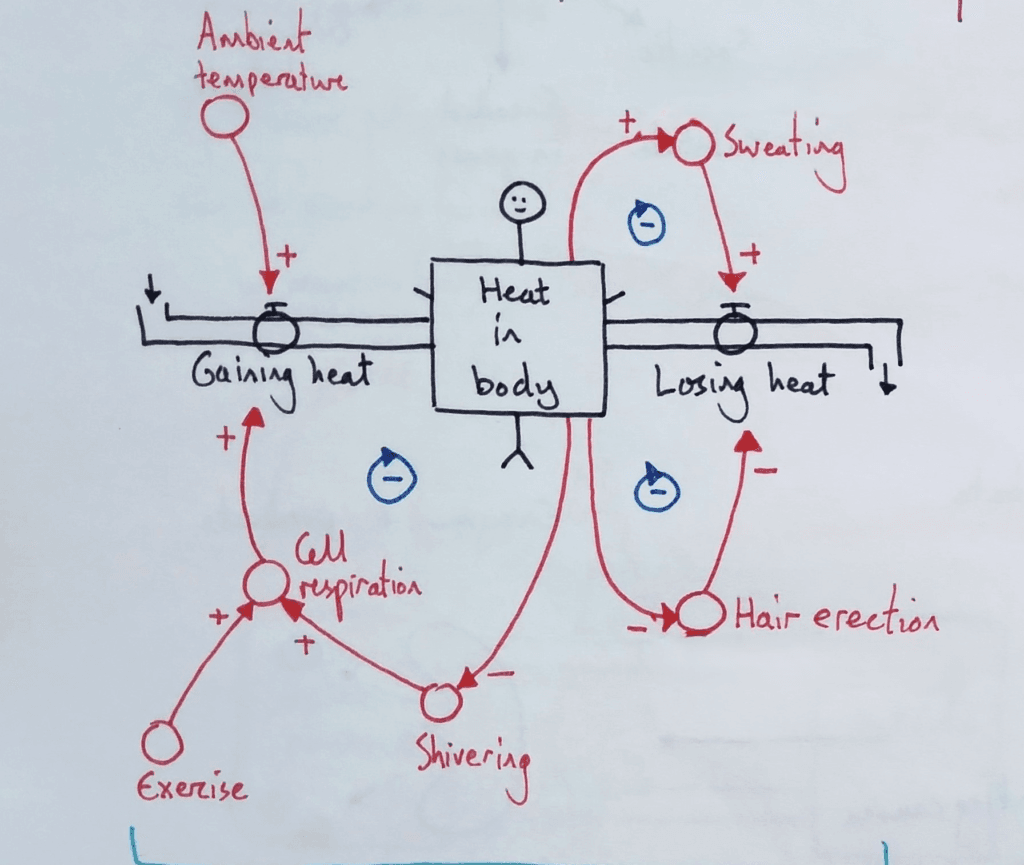 Ambient
temperature
+
Sweating
-
+
+
Heat
in
body
Gaining heat
Losing heat
+
-
-
-
Cell
respiration
+
+
-
-
Hair erection
Shivering
Exercise